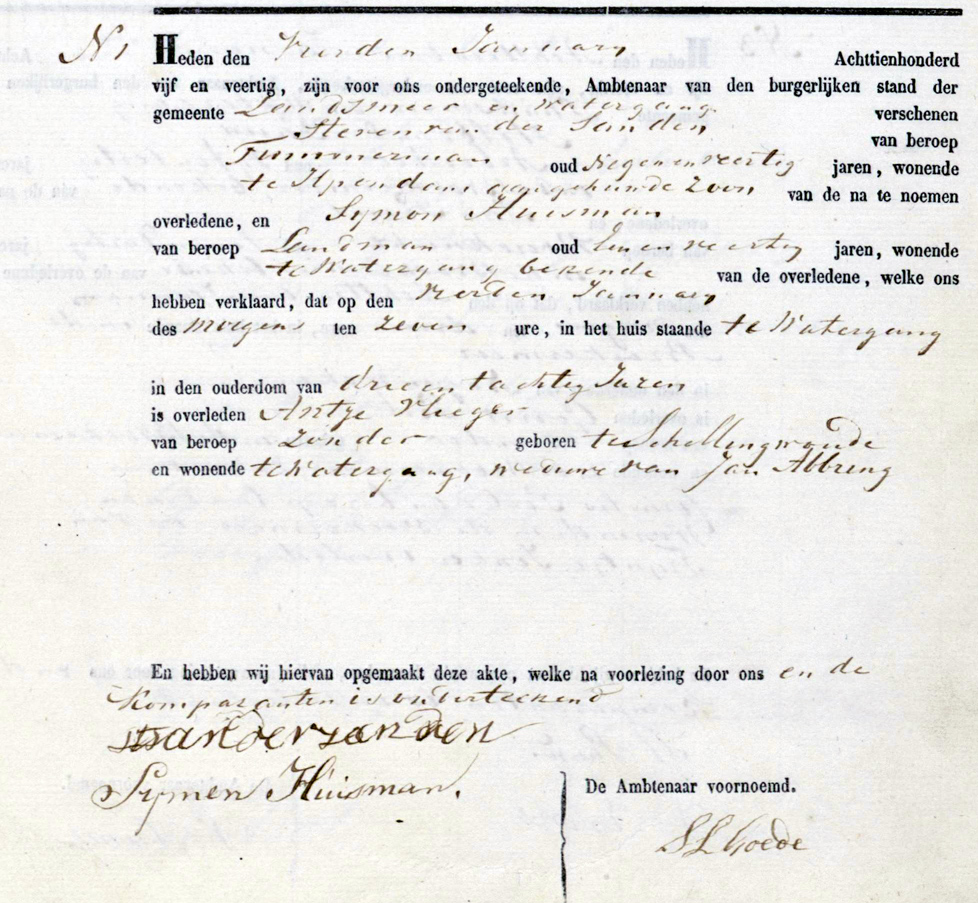 N 1 Heden den Vierden Januarij Achttienhonderd
vijf en veertig, zijn voor ons ondergeteekende, Ambtenaar van den burgerlijken stand der
gemeente Landsmeer en Watergang verschenen
Steven van der Sanden van beroep
Timmerman oud Negenenveertig jaren, wonende
te Ilpendam aangehuwde Zoon van de na te noemen
overledene, en Symon Huisman
van beroep Landman oud eenenveertig jaren, wonende
te Watergang bekende van de overledene, welke ons
hebben verklaard, dat op den Vierden Januarij
des Morgens ten Zeven ure, in het huis staande te Watergang
in den ouderdom van drieentachtig Jaren
is overleden Antje Vlieger
van beroep Zonder geboren te Schellingwoude
en wonende te Watergang, weduwe van Jan Abbring
En hebben wij hiervan opgemaakt deze akte, welke na voorlezing door ons en de
Komparanten is onderteekend
vanderzanden
Symen Huisman.
De Ambtenaar voornoemd.
SL Goede